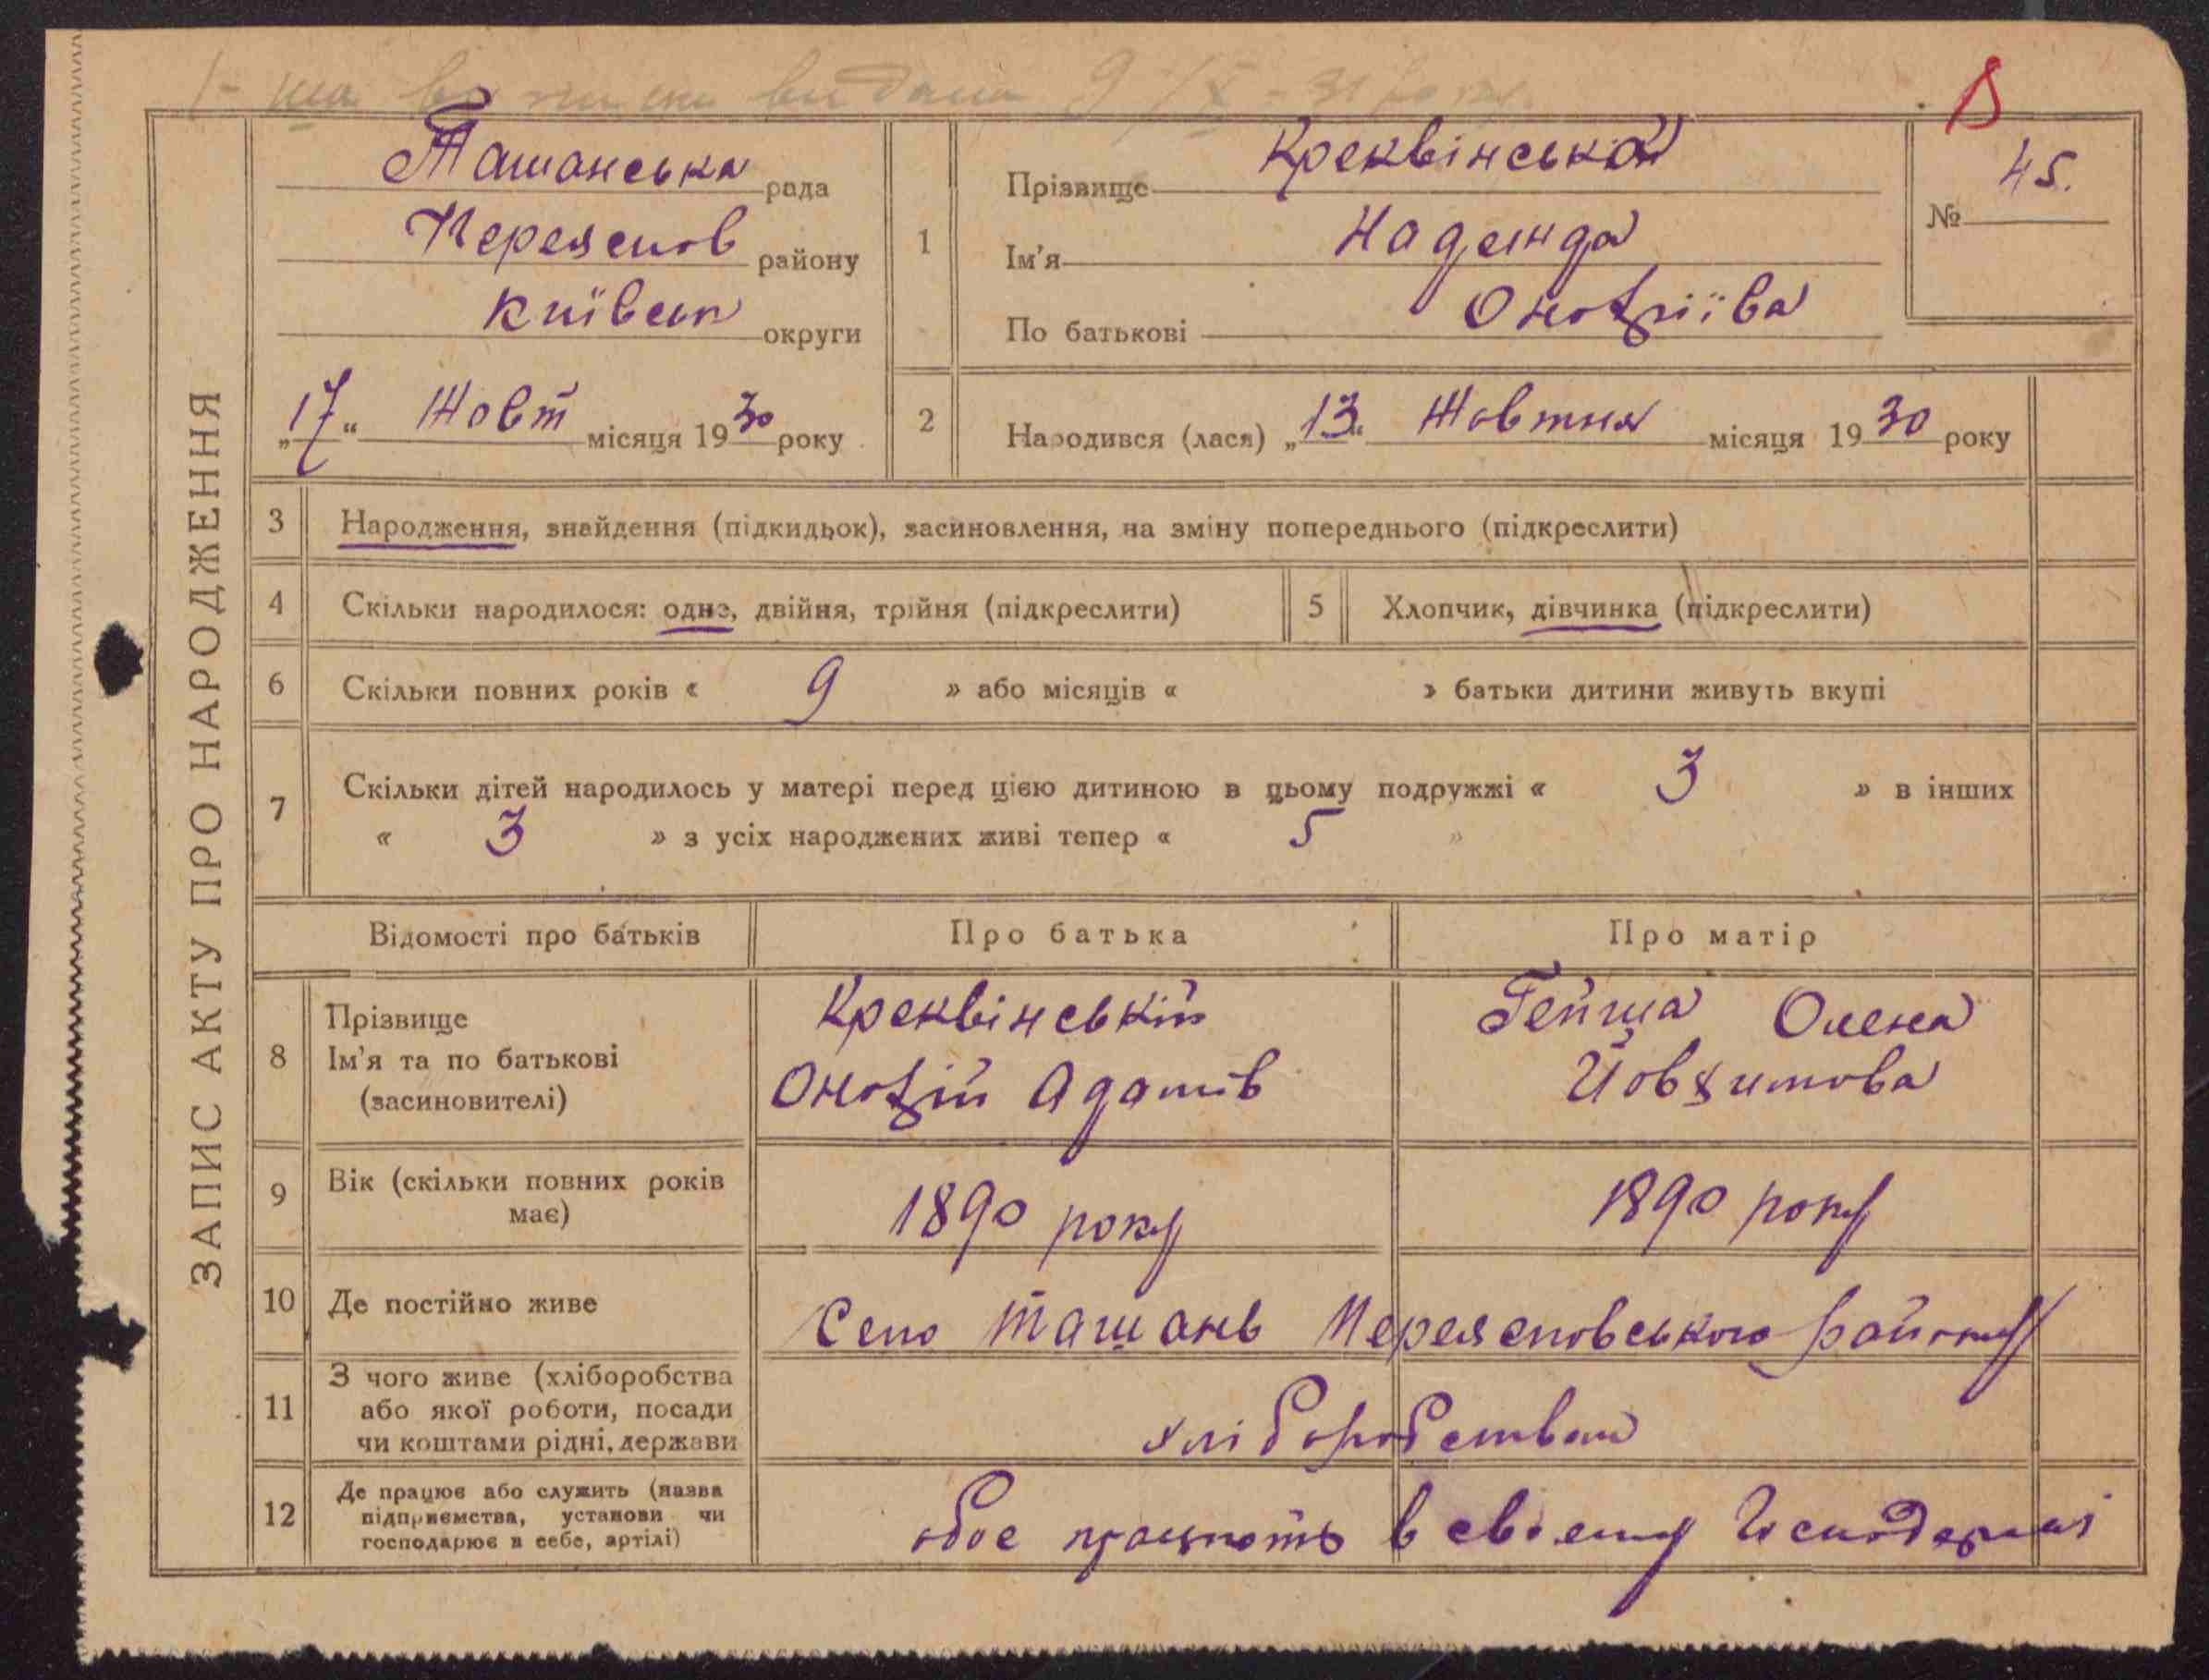 1-ша виписка видана 9/IX-31 року.
ЗАПИС АКТУ ПРО НАРОДЖЕННЯ
Ташанська рада
Переяслов району
Київськ округи
„17“ Жовт місяця 1930 року
1
Прізвище Креквінськой
Ім'я Надежда
По батькові Онофріїва
№ 45.
2
Народився (лася) „13“ Жовтня місяця 1930 року
3 Народження, знайдення (підкидьок), засиновлення, на зміну попереднього (підкреслити)
4 Скільки народилося: одне, двійня, трійня (підкреслити)
5 Хлопчик, дівчинка (підкреслити)
6 Скільки повних років « 9 » або місяців « » батьки дитини живуть вкупі
7 Скільки дітей народилось у матері перед цією дитиною в цьому подружжі « 3 » в інших
« 3 » з усіх народжених живі тепер « 5 »
Відомості про батьків Про батька Про матір
8 Прізвище
Ім'я та по батькові
(засиновителі)
Креквінській
Онофрій Адамів
Гейша Олена
Йовхимова
9 Вік (скільки повних років
має)
1890 року
1890 року
10 Де постійно живе
Село Ташань Переясловського району
11 З чого живе (хліборобства
або якої роботи, посади
чи коштами рідні, держави
хліборобством
12 Де працює або служить (назва
підприємства, установи чи
господарює в себе, артілі)
обоє працюють в своєму